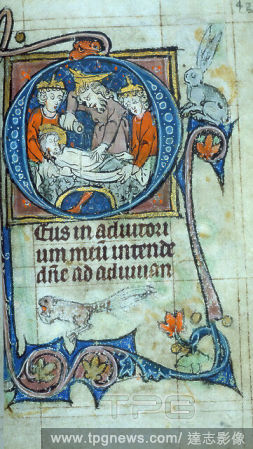 Eus in adiutori
um meū intende
dñe ad adiuuan
TPG
www.tpgnews.com/ 達志影像